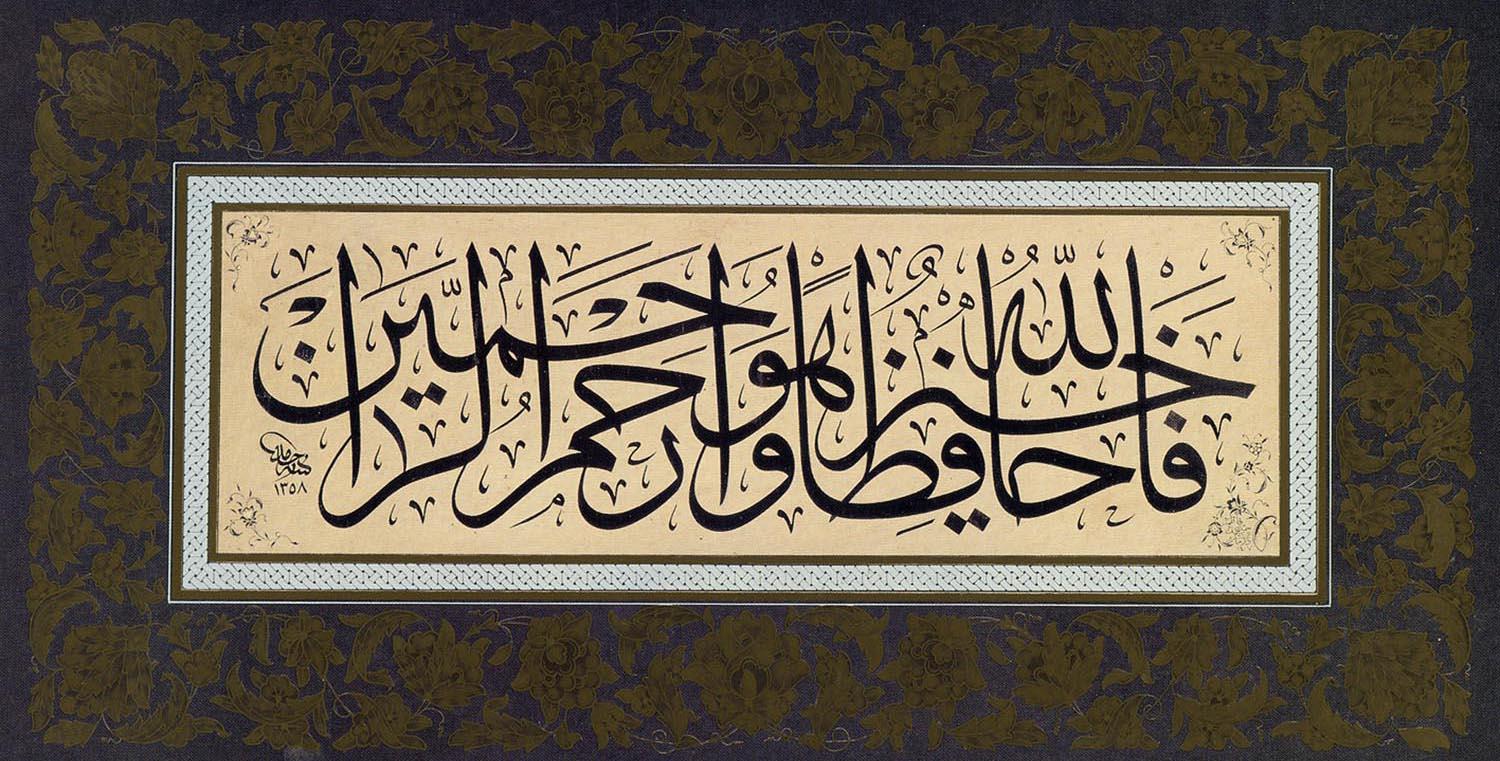 فَاللّٰهُ خَيْرٌ حَافِظًا وَهُوَ أَرْحَمُ الرَّاحِمِينَ
حامد
١٣٥٨